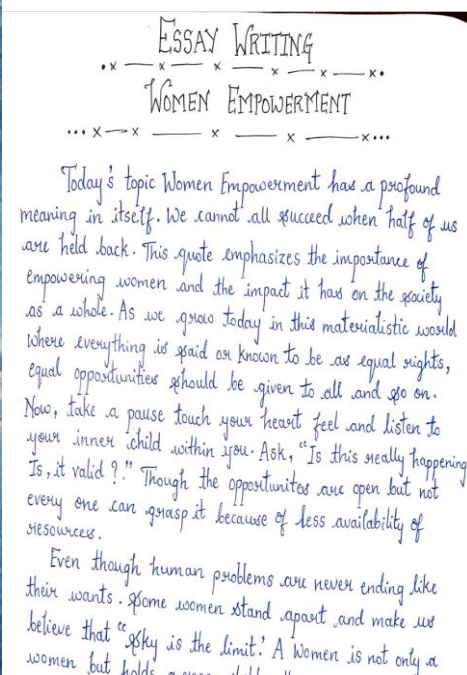 ESSAY WRITING
WOMEN EMPOWERMENT
Today's topic Women Empowerment has a profound
meaning in itself. We cannot all succeed when half of us
are held back. This quote emphasizes the importance of
empowering women and the impact it has on the society
as a whole. As we grow today in this materialistic world
where everything is said or known to be as equal rights,
equal opportunities should be given to all and so on.
Now, take a pause touch your heart feel and listen to
your inner child within you. Ask, "Is this really happening
Is, it valid ?." Though the opportunites are open but not
every one can grasp it because of less availability of
resources.
Even though human problems are never ending like
their wants. Some women stand apart and make us
believe that "Sky is the limit.' A Women is not only a
women but holds a